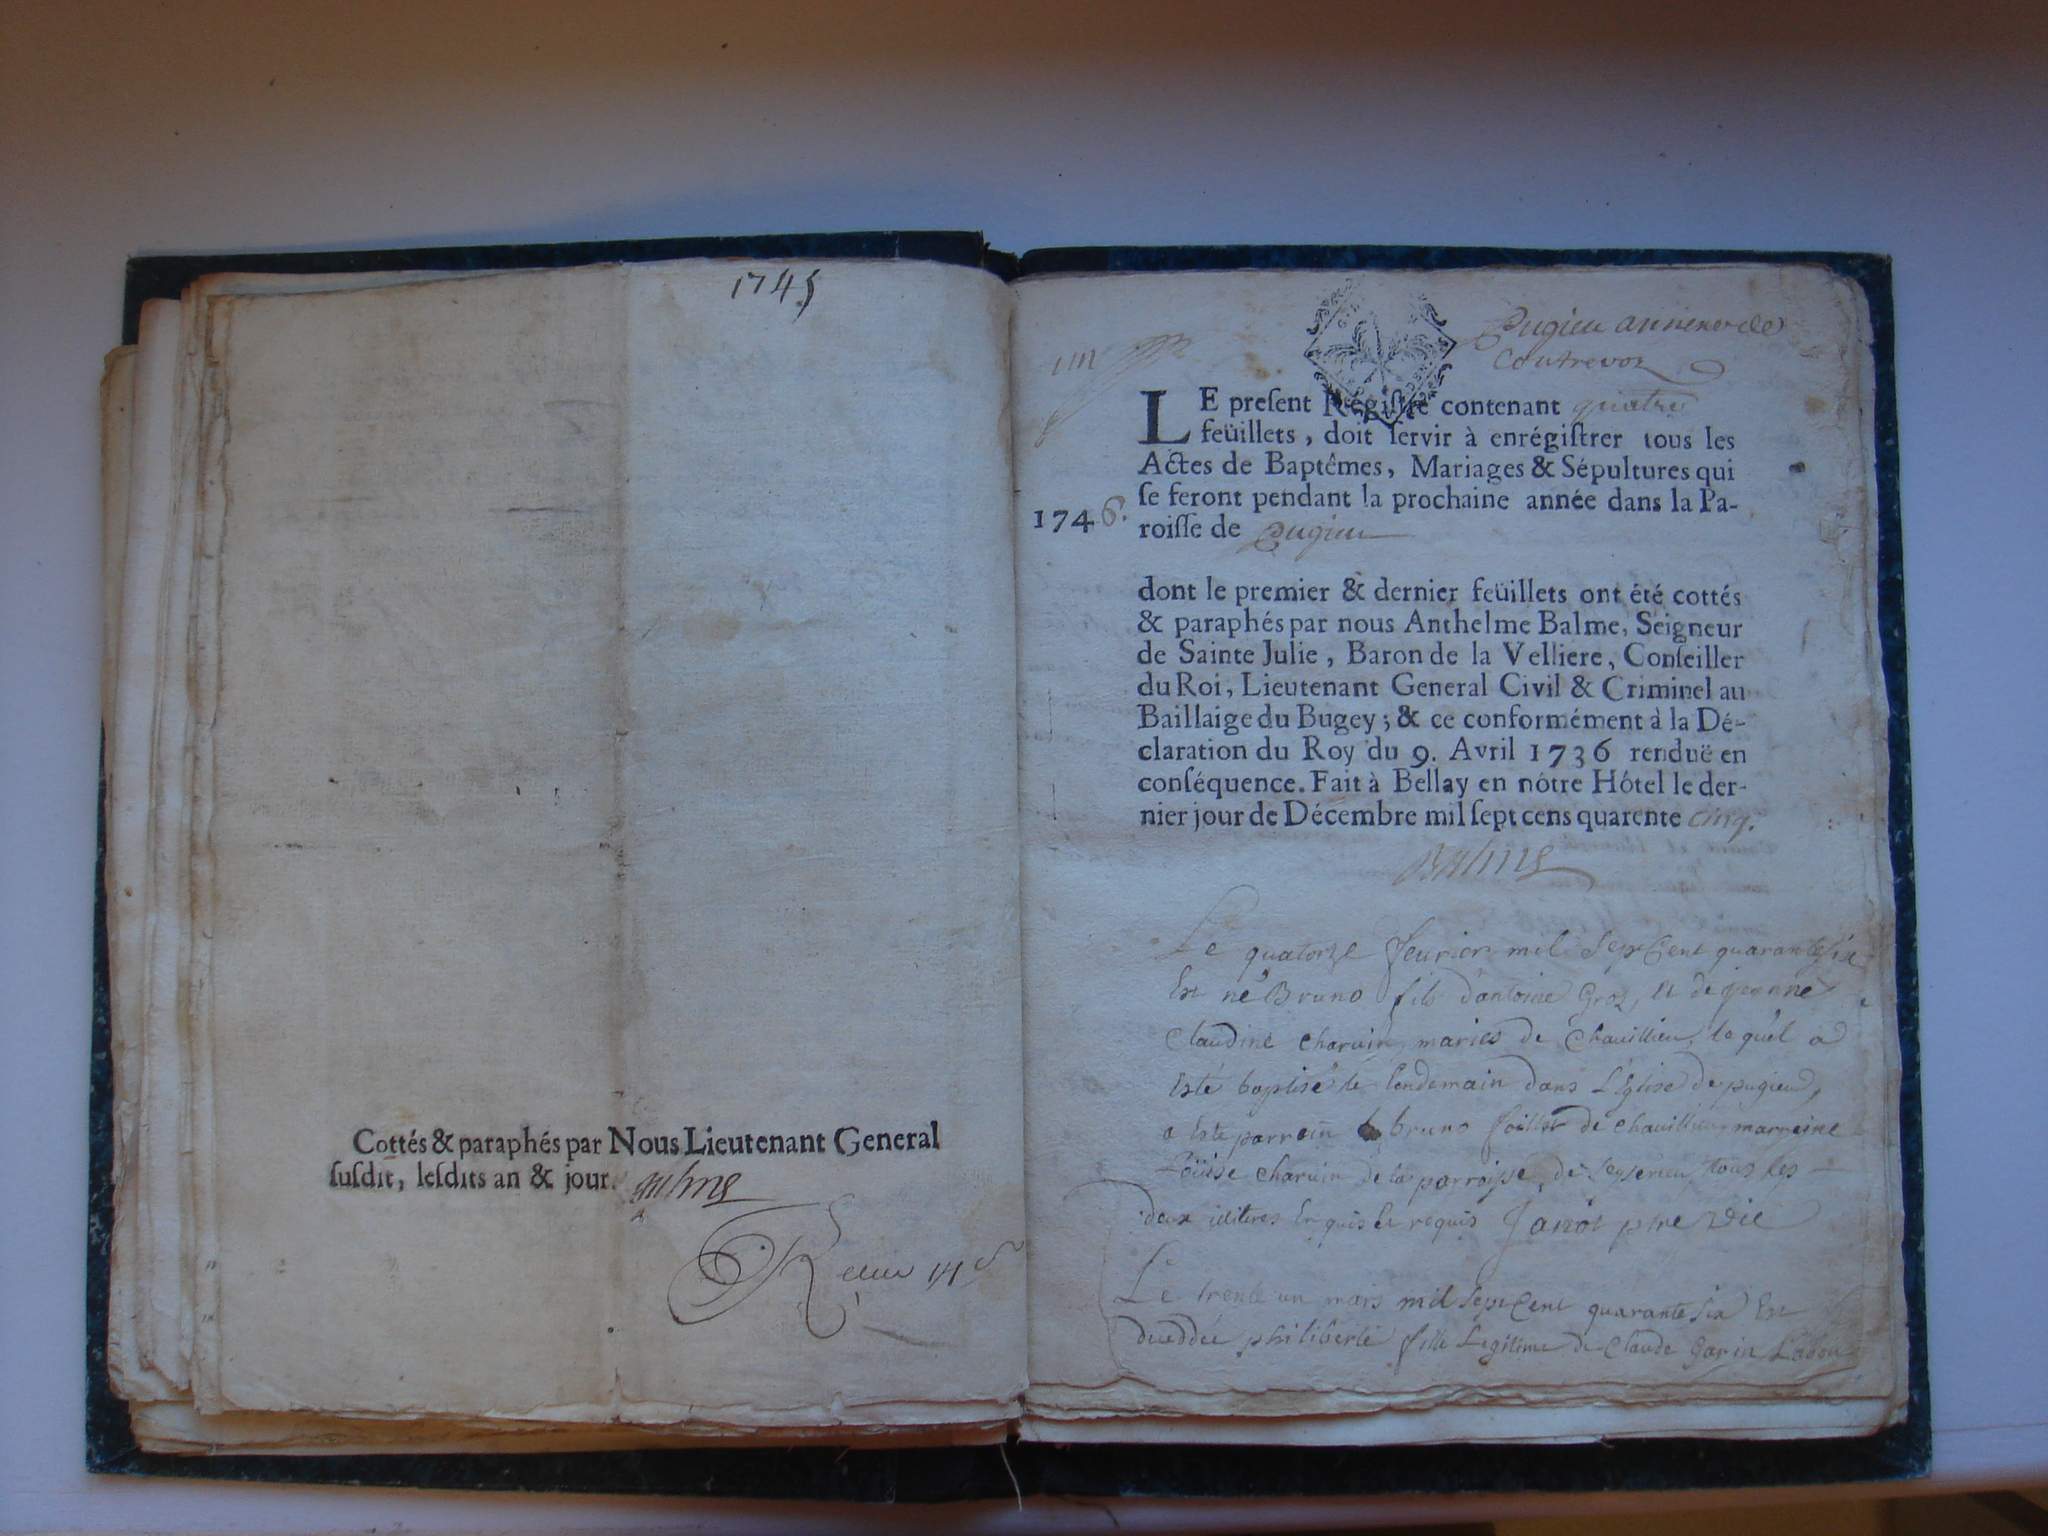 1745
Cottés & paraphés par Nous Lieutenant General
susdit, lesdits an & jour. Balme
Pugieu annexe de
Contrevoz
LE preſent Régiſtre contenant quatre
feüillets, doit ſervir à enrégiſtrer tous les
Actes de Baptêmes, Mariages & Sépultures qui
ſe feront pendant la prochaine année dans la Pa-
1746. roiſſe de Pugieu
dont le premier & dernier feüillets ont été cottés
& paraphés par nous Anthelme Balme, Seigneur
de Sainte Julie, Baron de la Velliere, Conſeiller
du Roi, Lieutenant General Civil & Criminel au
Baillaige du Bugey; & ce conformément à la Dé-
claration du Roy du 9. Avril 1736 renduë en
conſéquence. Fait à Bellay en nôtre Hôtel le der-
nier jour de Décembre mil ſept cens quarente cinq.
Balme
Le quatorze feurier mil Sept Cent quarante six
Est né Bruno fils d'antoine Groz, et de jeanne
Claudine Charuin mariés de Chauillieu, lequel a
Esté baptisé le lendemain dans L'Eglise de pugieu,
a Esté parrain bruno de chauillieu marreine
Loüise charuin de la parroisse de Seyserieu tous les
deux illiteres Enquis et requis Janot ptre vic
Le trente un mars mil Sept Cent quarante six Est
décédée philiberte fille Legitime de Claude Garin